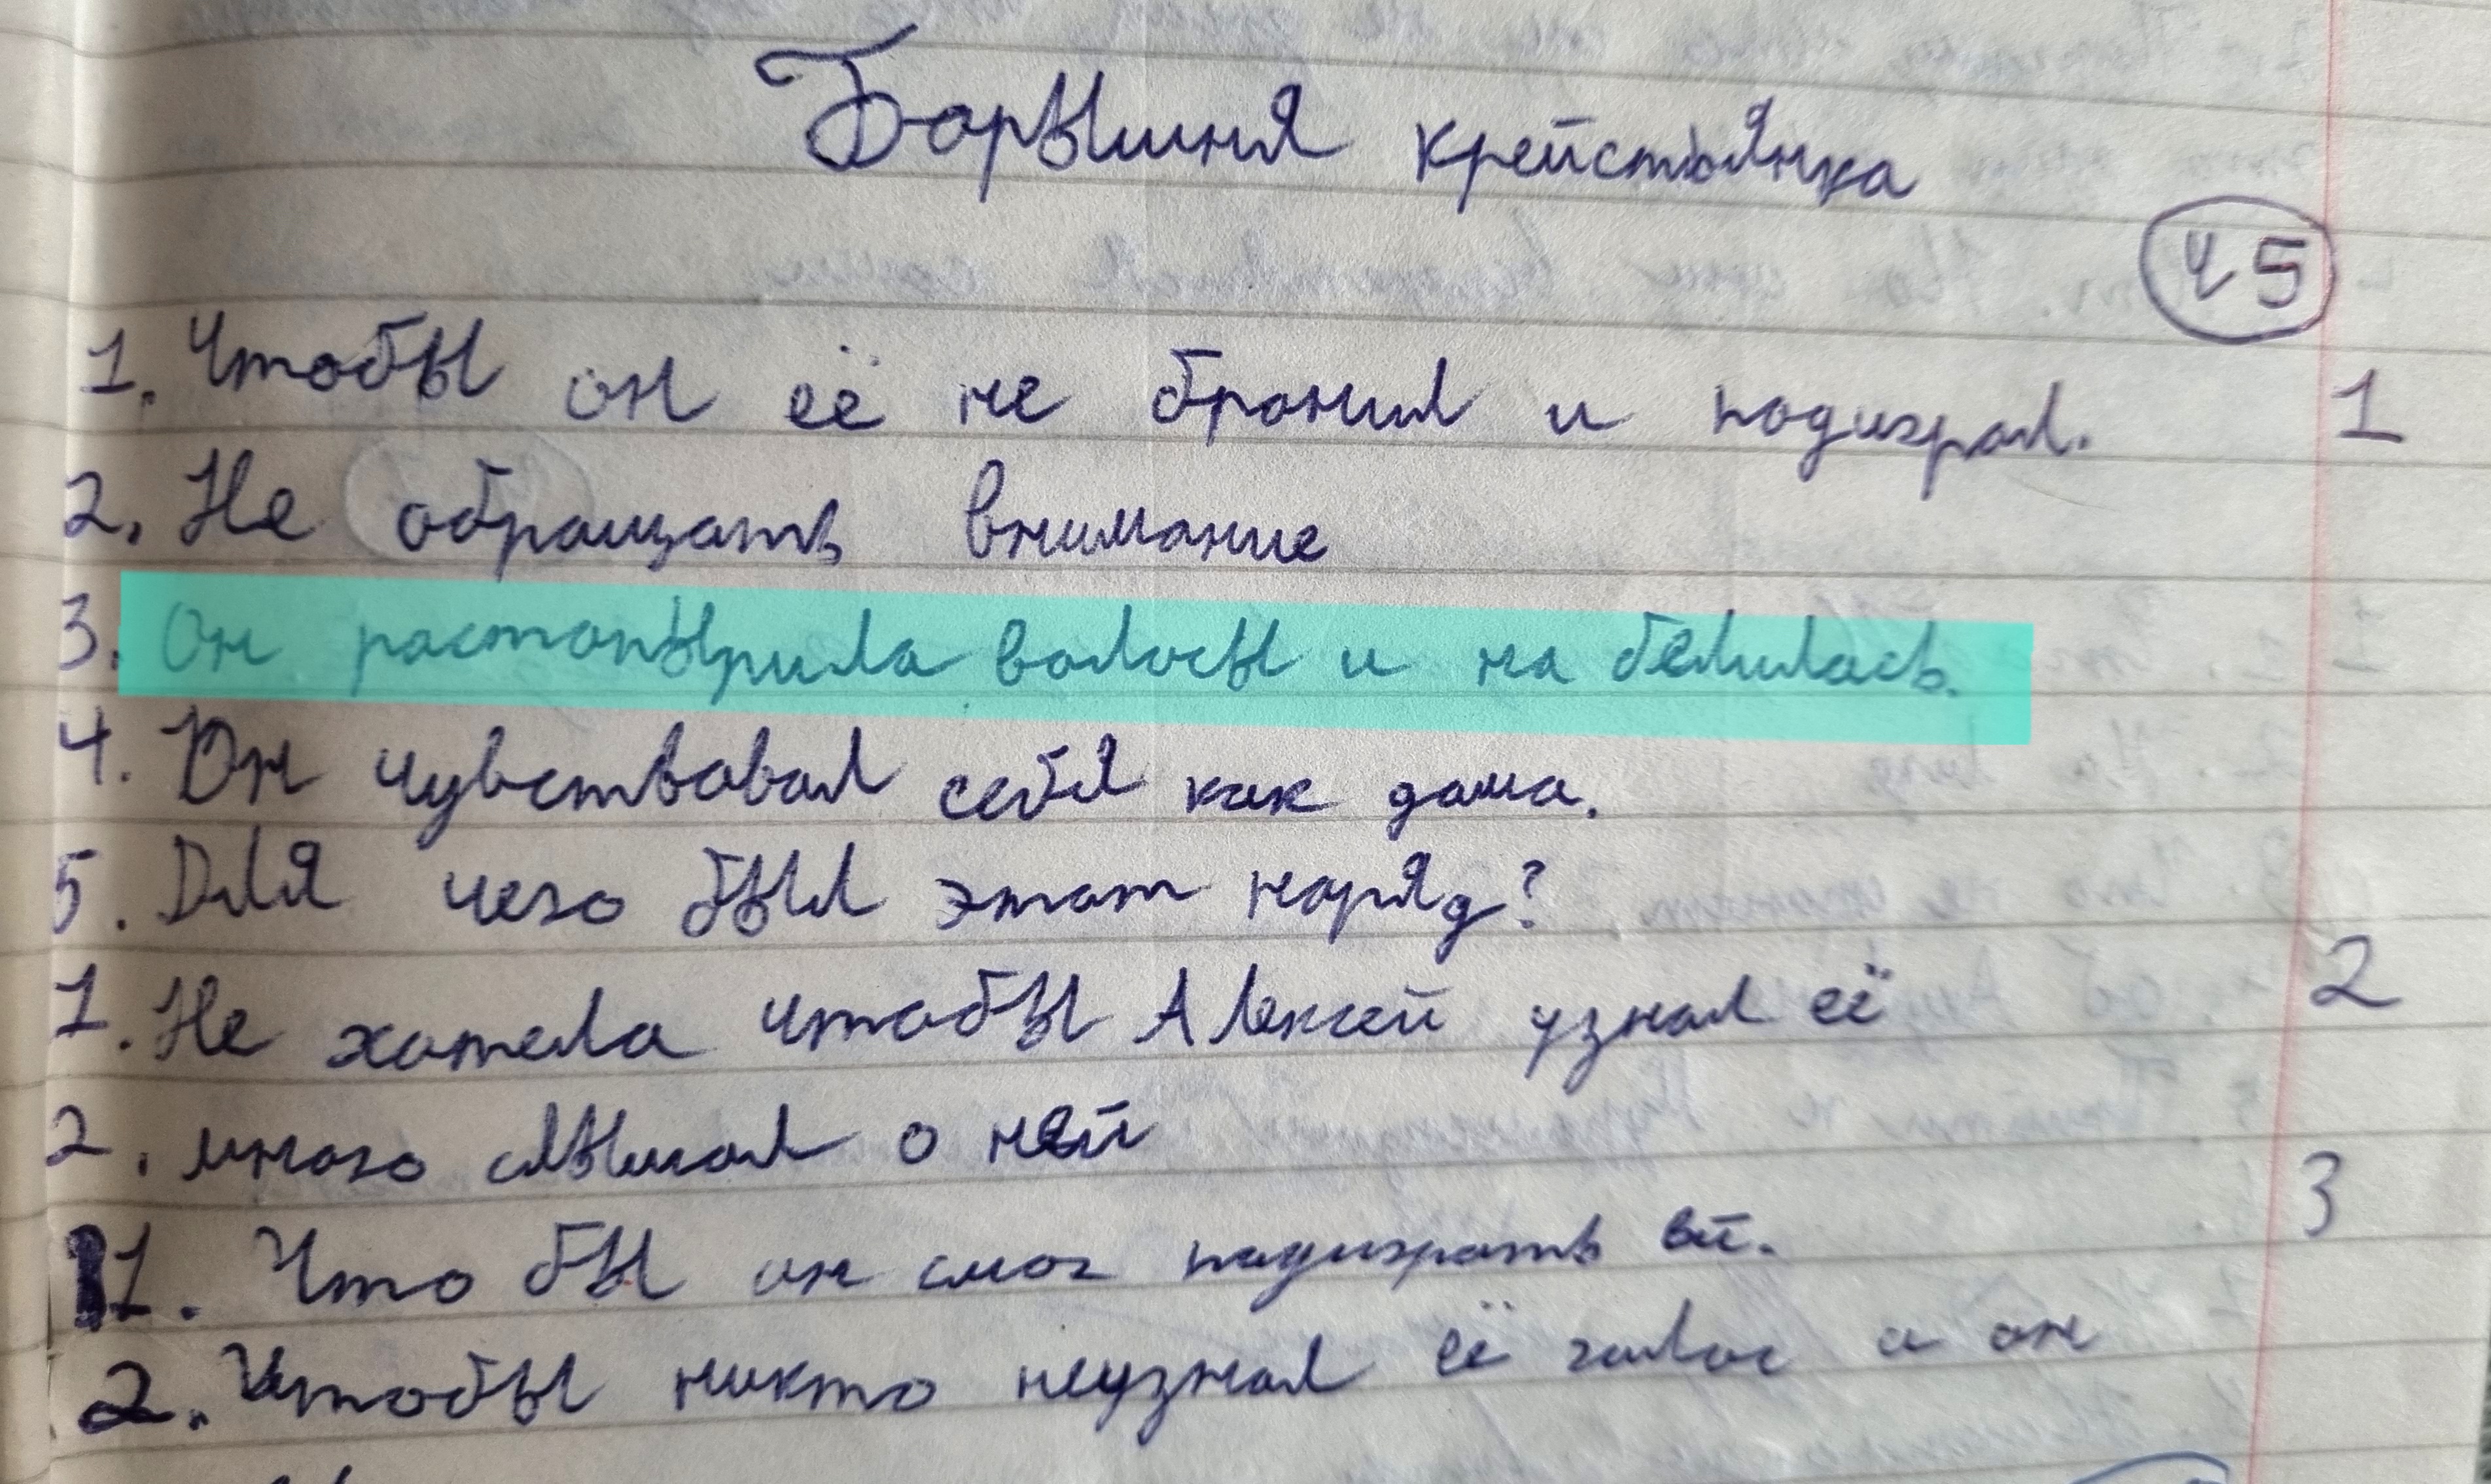 Барышня крейстьянка
ч5
1. Чтобы он её не бранил и подиграл. 1
2. Не обращать внимание
3. Он растопырила волосы и на белилась.
4. Он чувствовал себя как дама.
5. Для чего был этот наряд?
1. Не хотела чтобы Алексей узнал её 2
2. много слышал о ней
1. Что бы он смог подиграть ей. 3
2. Чтобы никто неузнал её голос а он